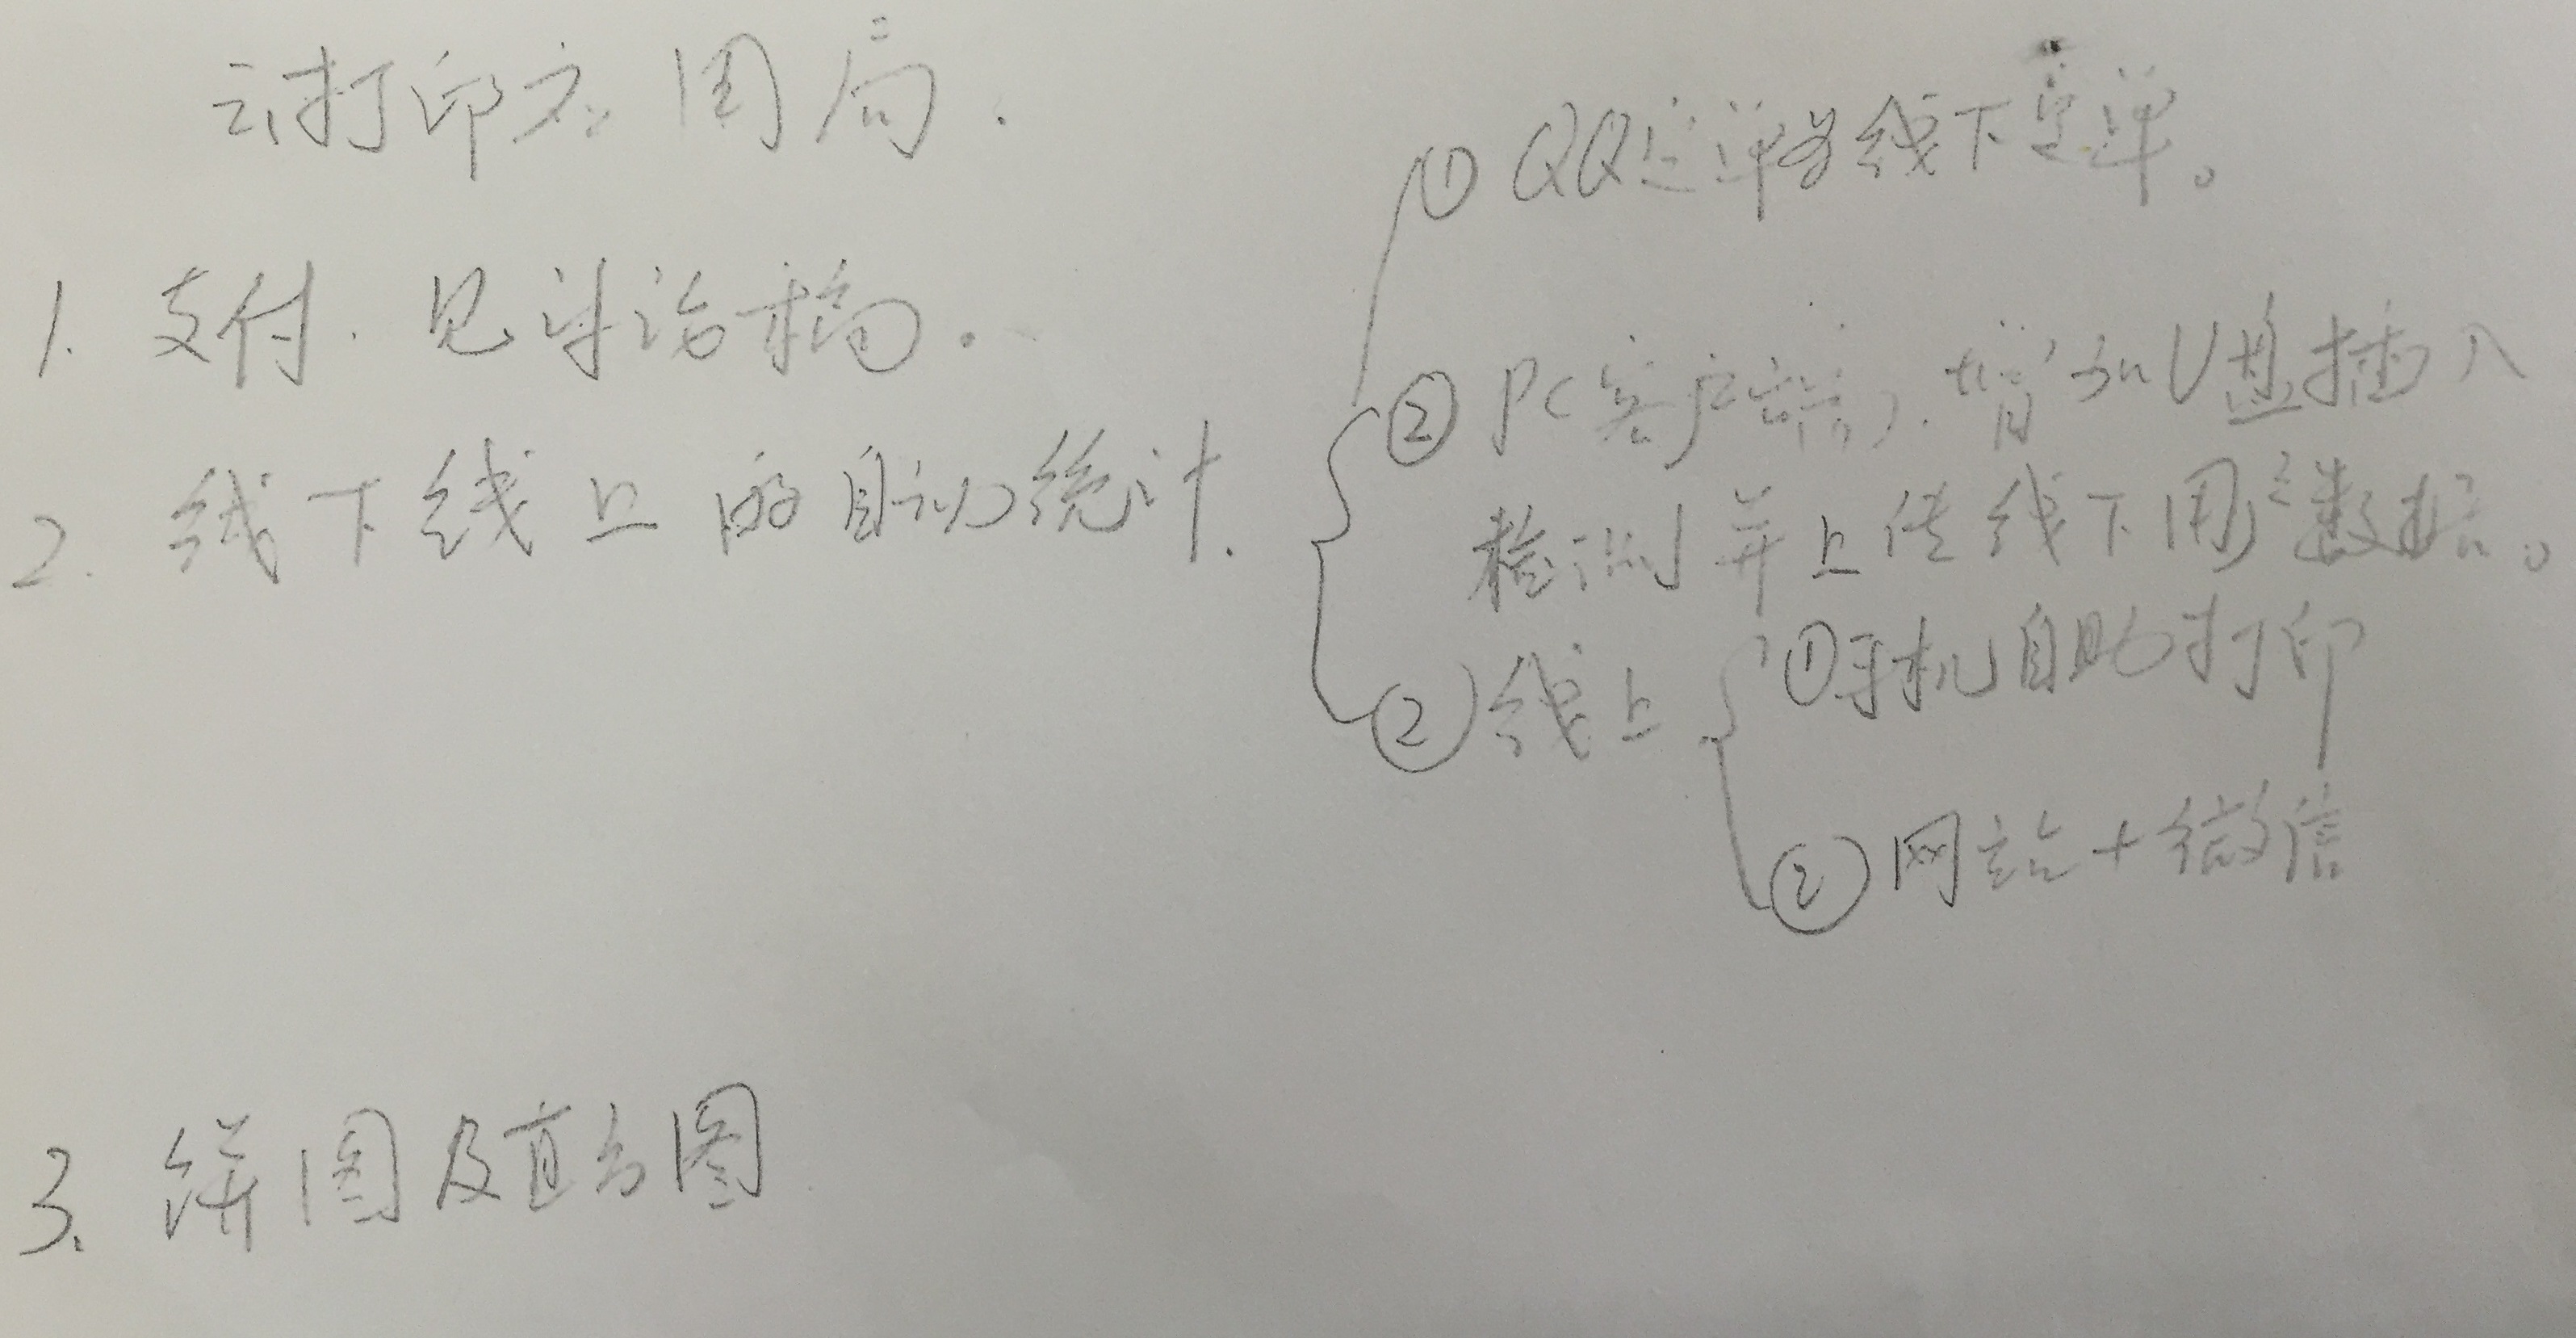 云打印 周
1. 支付. 见讨论稿。
2. 线下线上的自动统计.
① QQ定单为线下定单。
② PC客户端, 增加U盘插入
检测并上传线下用户数据。
② 线上
① 手机自助打印
② 网站+微信
3. 饼图及直方图